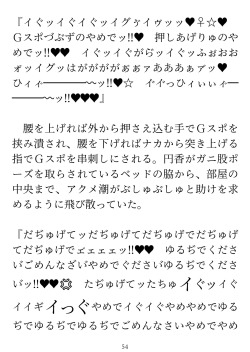 『イぐッィぐイぐッィグゲィゥッッ♥♀☆♥
Gスポづぶずのやめでッ!!♥　押しあげりゅのや
めでッ!!♥♥　イぐッイぐがらッイぐッふぉおお
ォッイグッはがががぁぁァあああァッ♥
ひィィ━━━━〜ッ!!♥☆　イイっひィぃぃィ━
━━━━〜ッ!!♥♥♥』
　腰を上げれば外から押さえ込む手でGスポを
挟み潰され、腰を下げればナカから突き上げる
指でGスポを串刺しにされる。円香がガニ股ポ
ーズを取らされているベッドの脇から、部屋の
中央まで、アクメ潮がぶしゅぶしゅと助けを求
めるように飛び散っていた。
『だぢゅげてッだぢゅげてだぢゅげでだぢゅげ
てだぢゅげでェェェェッ!!♥♥　ゆるぢでくださ
いごめんなざいやめでぐださいゆるぢでくださ
いッ!!♥♥　たぢゅげてッたちゅゅイぐッイぐ
イイギイっぐやめでイぐイぐやめやめでゆる
ぢでゆるぢでゆるぢでごめんなさいやめでやめ
54